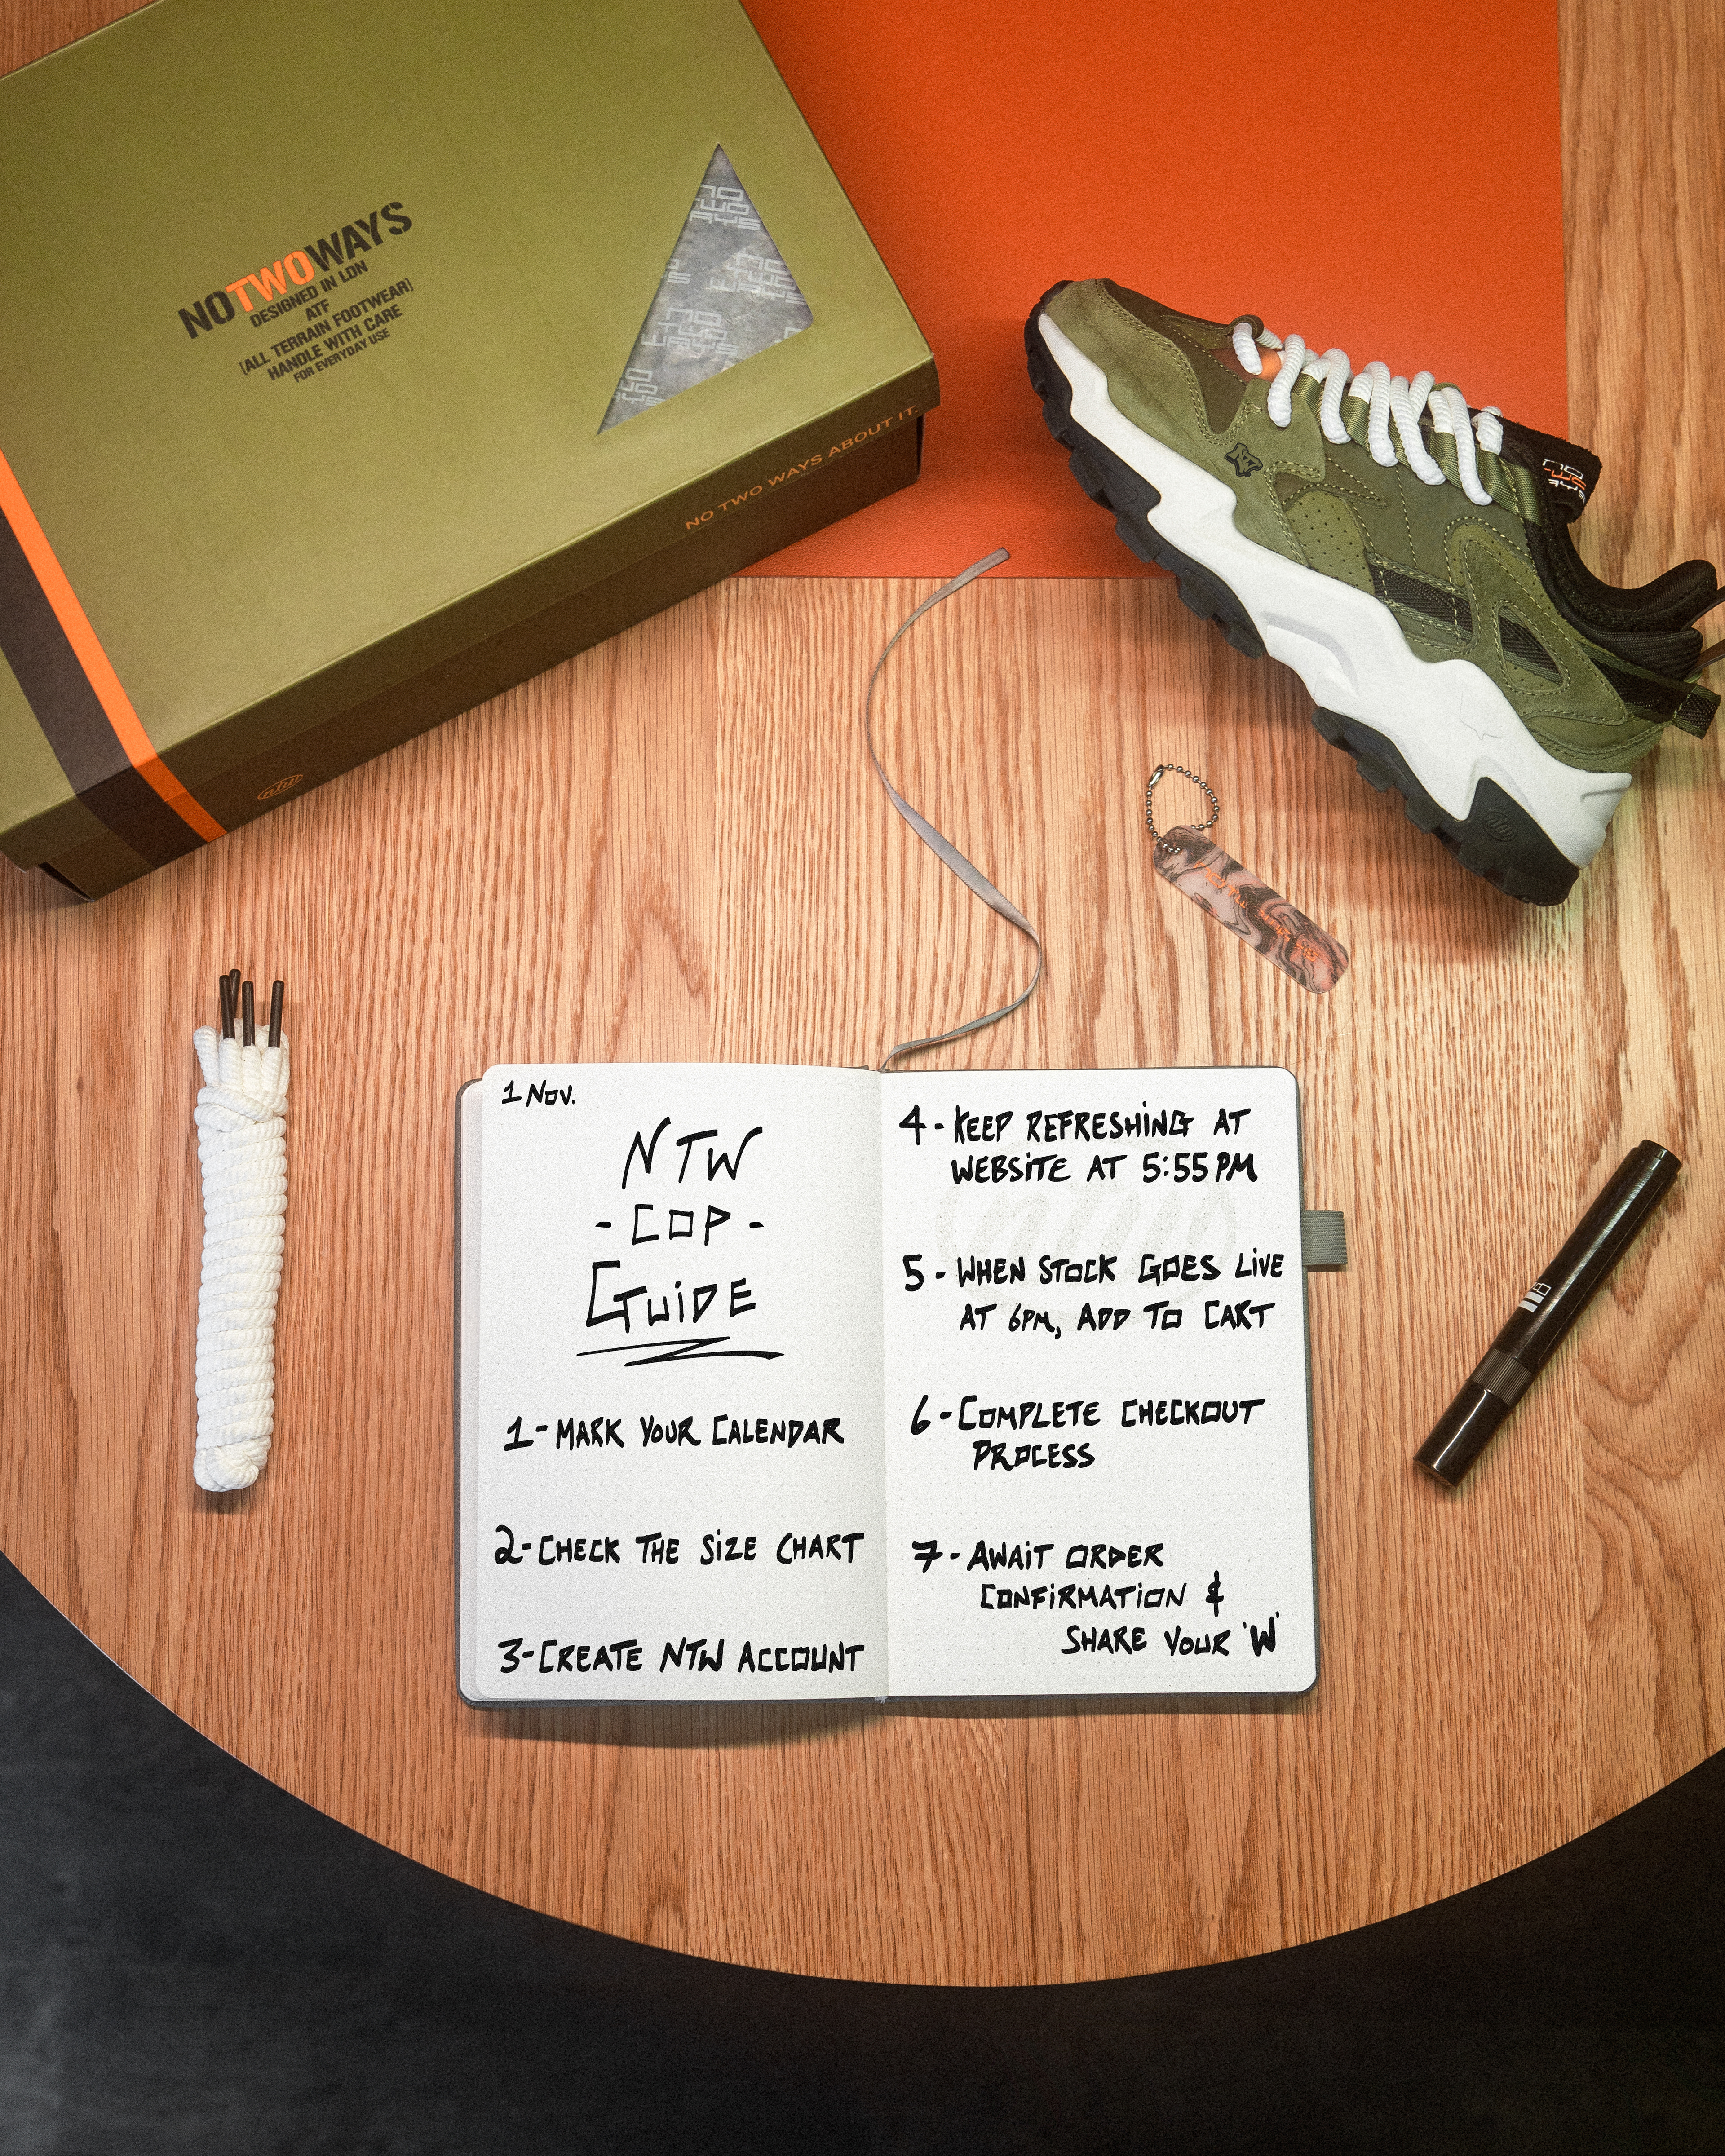 NOTWOWAYS
DESIGNED IN LDN
ATF
[ALL TERRAIN FOOTWEAR]
HANDLE WITH CARE
FOR EVERYDAY USE
NO TWO WAYS ABOUT IT.
ntw
NO
TWO
WAYS
1 Nov.
NTW
- COP -
GUiDE
1- MARK YOUR CALENDAR
2- CHECK THE SiZE CHART
3- CREATE NTW ACCOUNT
4 - KEEP REFRESHiNG AT
WEBSiTE AT 5:55 PM
5 - WHEN STOCK GOES LiVE
AT 6PM, ADD TO CART
6 - COMPLETE CHECKOUT
PROCESS
7 - AWAiT ORDER
CONFiRMATiON &
SHARE YOUR 'W'